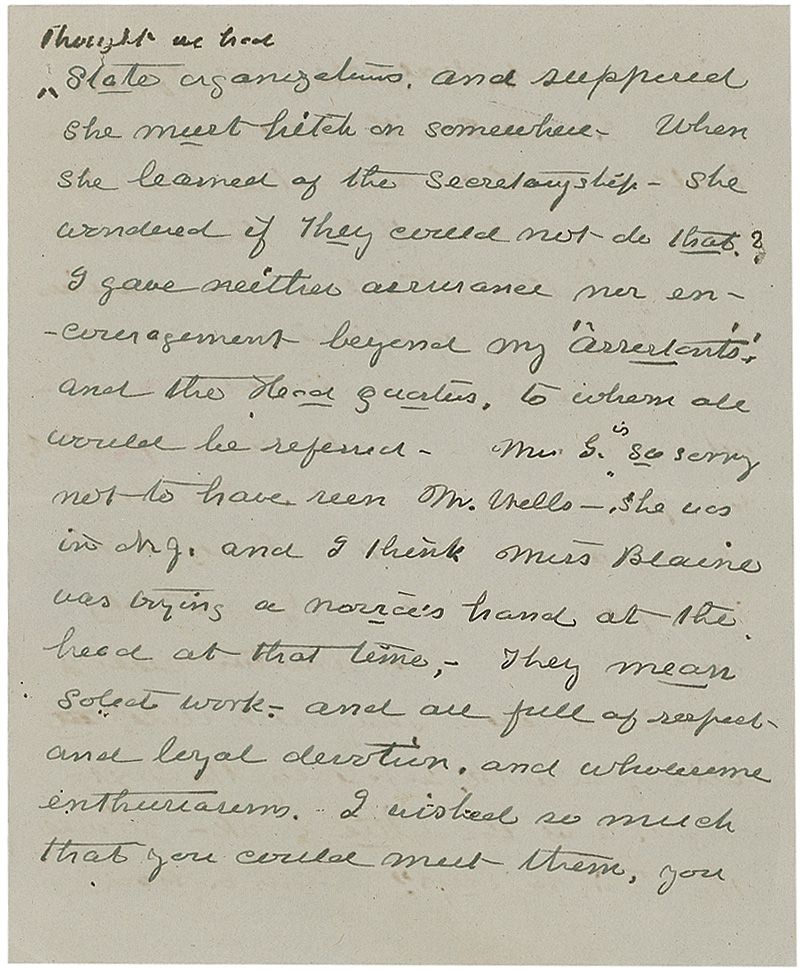 Thought we had
State organizations, and supposed
she must hitch on somewhere - When
she learned of the Secretaryship - she
wondered if they could not do that?
I gave neither assurance nor en-
-couragement beyond my "Assistants",
and the Head quarters, to whom all
would be referred - Mrs G. is so sorry
not to have seen Mr. Wells - She was
in N.Y. and I think Miss Blaine
was trying a novice's hand at the
head at that time, - They mean
solid work - and are full of respect
and loyal devotion, and wholesome
enthusiasm. - I wished so much
that you could meet them, you